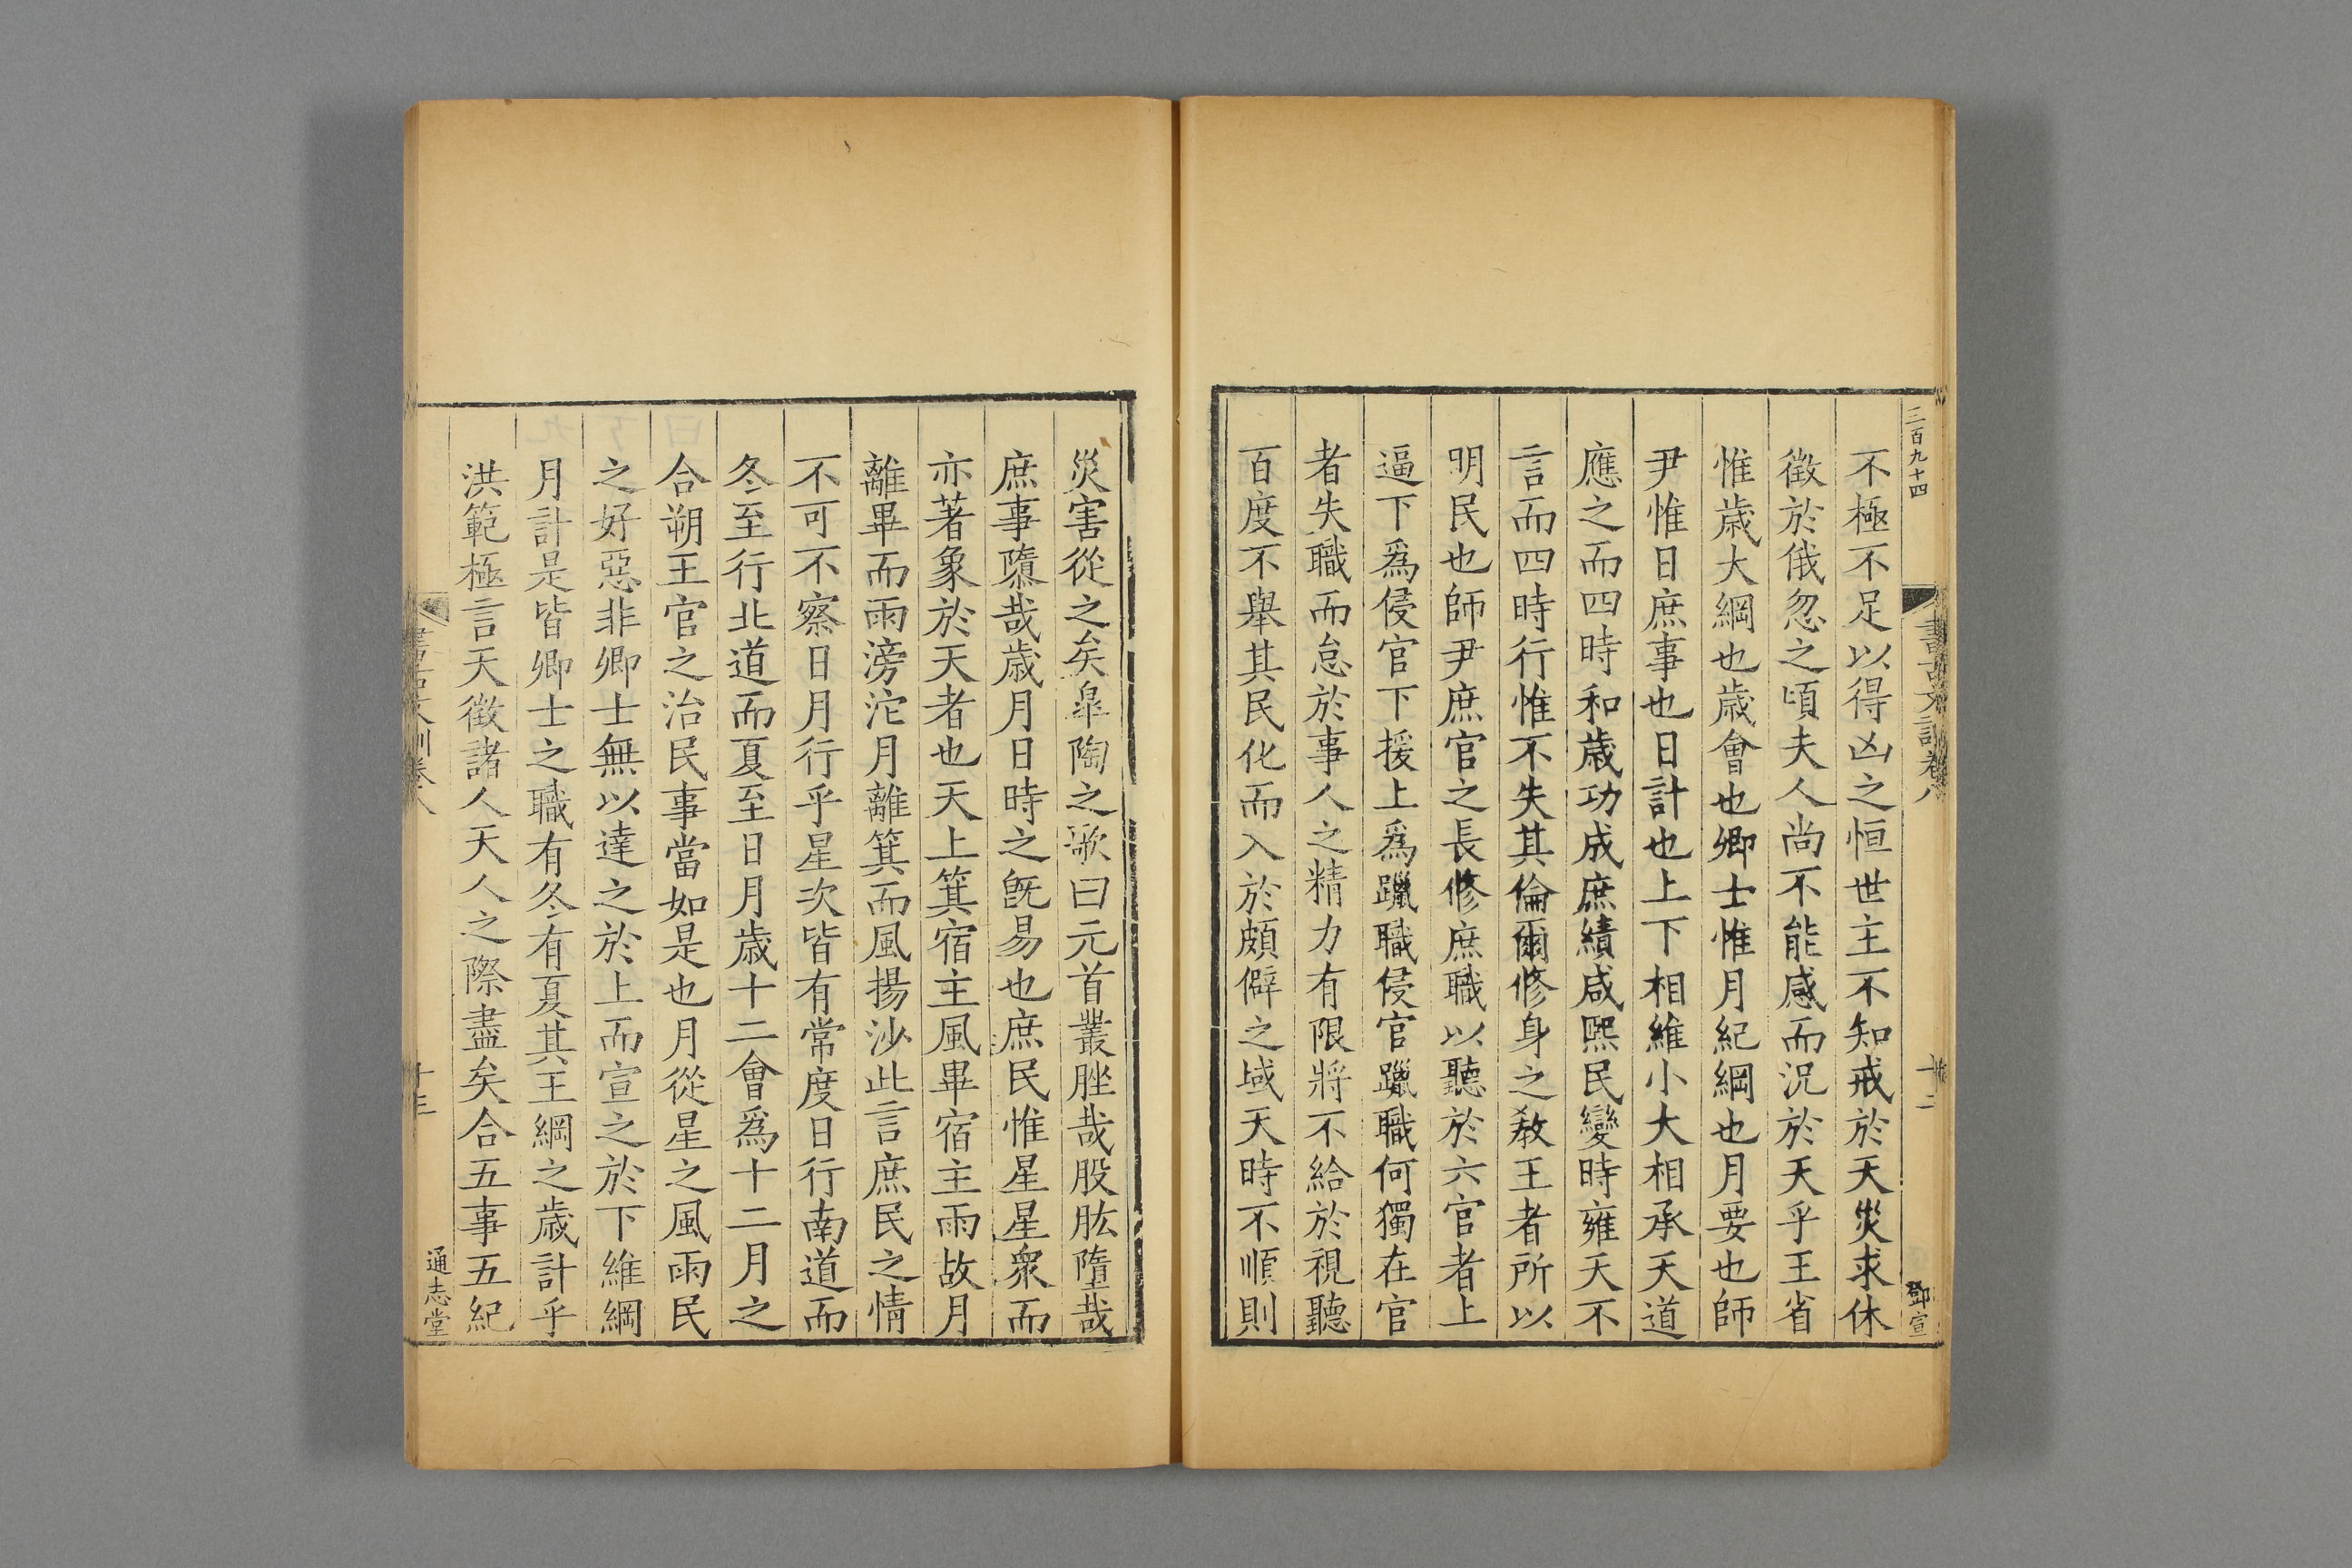 三百九十四
書古文訓卷八
十二
鄧宣
不極不足以得凶之恒世主不知戒於天災求休
徵於俄忽之頃夫人尚不能感而況於天乎王省
惟歳大綱也歳會也卿士惟月紀綱也月要也師
尹惟日庶事也日計也上下相維小大相承天道
應之而四時和歳功成庶績咸熙民變時雍天不
言而四時行惟不失其倫爾修身之敎王者所以
明民也師尹庶官之長修庶職以聽於六官者上
逼下爲侵官下援上爲躐職侵官躐職何獨在官
者失職而怠於事人之精力有限將不給於視聽
百度不舉其民化而入於頗僻之域天時不順則
災害從之矣皐陶之歌曰元首叢脞哉股肱墮哉
庶事隳哉歳月日時之旣易也庶民惟星星衆而
亦著象於天者也天上箕宿主風畢宿主雨故月
離畢而雨滂沱月離箕而風揚沙此言庶民之情
不可不察日月行乎星次皆有常度日行南道而
冬至行北道而夏至日月歳十二會爲十二月之
合朔王官之治民事當如是也月從星之風雨民
之好惡非卿士無以達之於上而宣之於下維綱
月計是皆卿士之職有冬有夏其王綱之歳計乎
洪範極言天徵諸人天人之際盡矣合五事五紀
書古文訓卷八
十三
通志堂